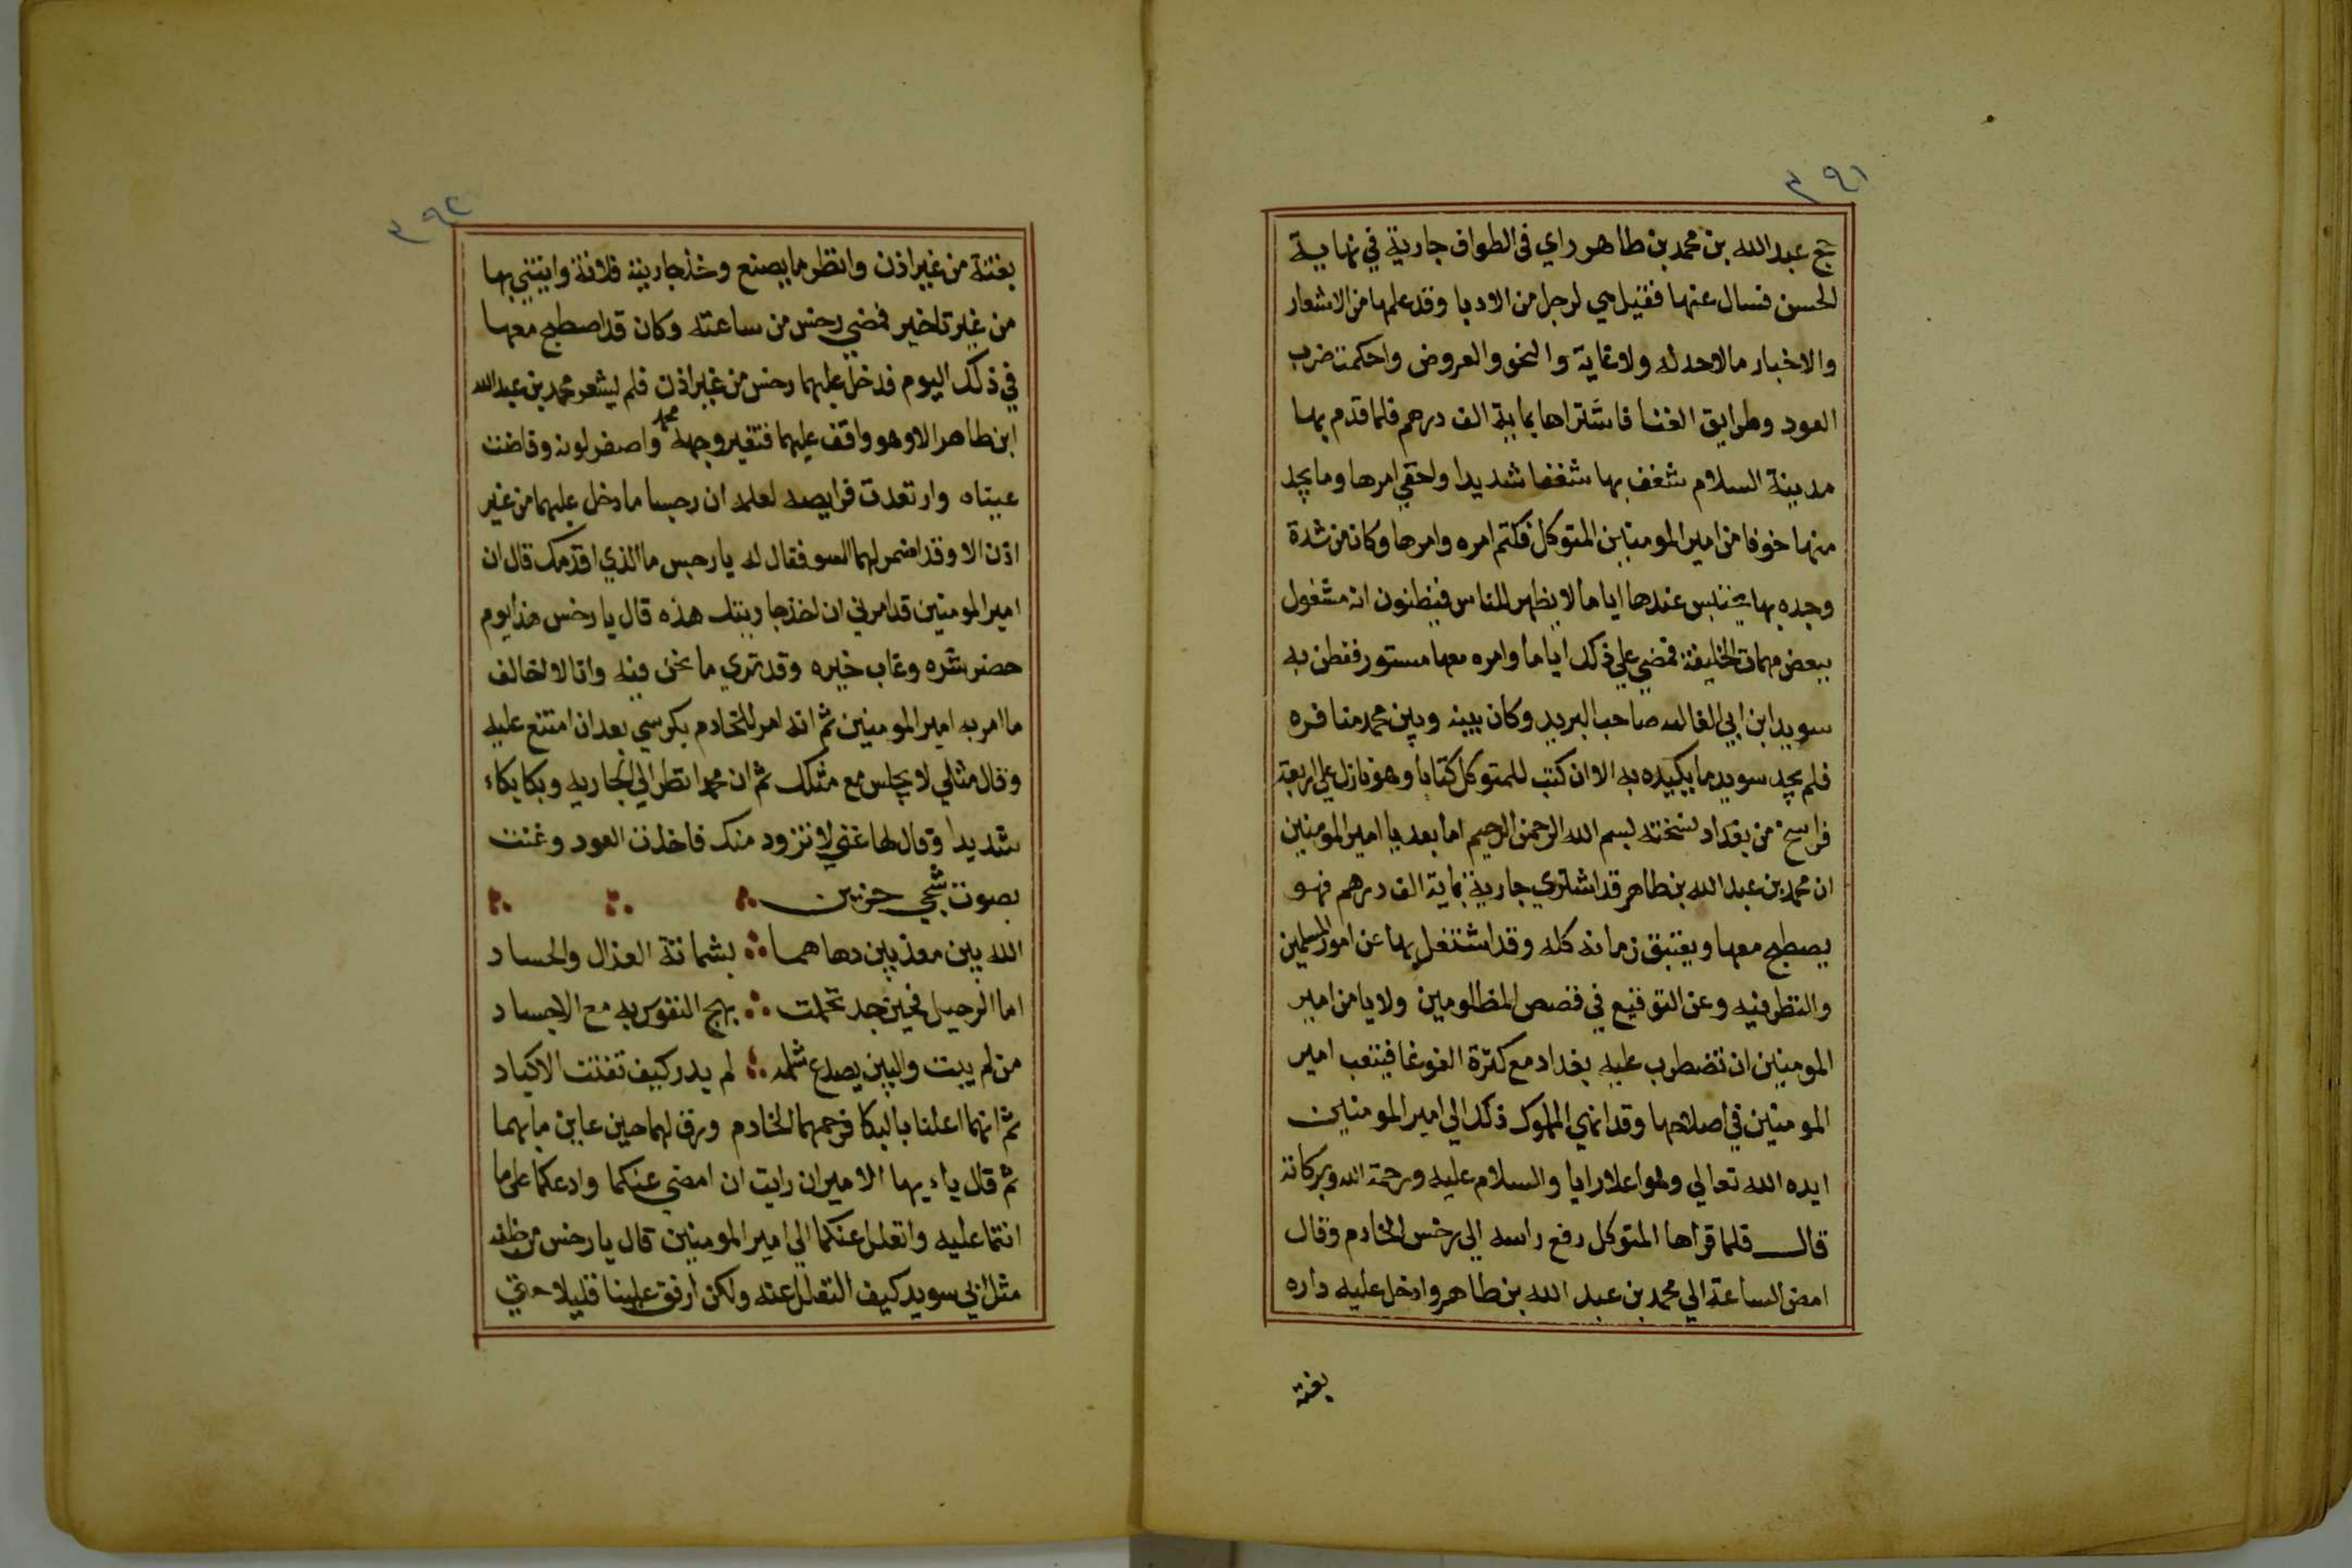 ٣٩١
حج عبد الله بن محمد بن طاهر راي في الطواف جارية في نهاية
الحسن فسال عنها فقيل هي لرجل من الادبا وقد علمها من الاشعار
والاخبار مالاحد له ولاغاية والنحو والعروض واحكمت ضرب
العود وطرايق الغنا فاشتراها بماية الف درهم فلما قدم بها
مدينة السلام شغف بها شغفا شديدا واخفي امرها وما يجد
منها خوفا من امير المومنين المتوكل فكتم امره وامرها وكان من شدة
وجده بها يحتبس عندها اياما لا يظهر للناس فيظنون انه مشغول
ببعض مهمات الخليفة فمضي علي ذلك اياما وامره معها مستور ففطن به
سويد ابن ابي العاليه صاحب البريد وكان بينه وبين محمد منافره
فلم يجد سويد ما يكيده به الا ان كتب للمتوكل كتابا وهو نازل علي اربعة
فراسخ من بغداد نسخته بسم الله الرحمن الرحيم اما بعد يا امير المومنين
ان محمد بن عبد الله بن طاهر قد اشتري جارية بماية الف درهم فهو
يصطبح معها ويغتبق زمانه كله وقد اشتغل بها عن امور المسلمين
والنظر فيه وعن التوقيع في قصص المظلومين ولا يامن امير
المومنين ان تضطرب عليه بغداد مع كثرة الغوغا فيتعب امير
المومنين في اصلاحها وقد انهي المملوك ذلك الي امير المومنين
ايده الله تعالي وهو اعلا رايا والسلام عليه ورحمة الله وبركاته
قال فلما قراها المتوكل رفع راسه الي رخس الخادم وقال
امض الساعة الي محمد بن عبد الله بن طاهر وادخل عليه داره
بغتة
٣٩٢
بغتة من غير اذن وانظر ما يصنع وخذ جاريته فلانة وايتني بها
من غير تاخير فمضي رخس من ساعته وكان قد اصطبح معها
في ذلك اليوم فدخل عليهما رخس من غير اذن فلم يشعر محمد بن عبد الله
ابن طاهر الا وهو واقف عليهما فتغير وجه محمد واصفر لونه وفاضت
عيناه وارتعدت فرايصه لعلمه ان رخسا ما دخل عليهما من غير
اذن الا وقد اضمر لهما السو فقال له يا رخس ما الذي اقدمك قال ان
امير المومنين قد امرني ان اخذ جاريتك هذه قال يا رخس هذا يوم
حضر شره وغاب خيره وقد تري ما نحن فيه وانا لا اخالف
ما امر به امير المومنين ثم انه امر للخادم بكرسي بعد ان امتنع عليه
وقال مثلي لا يجلس مع مثلك ثم ان محمدا نظر الي الجاريه وبكا بكاء
شديدا وقال لها غني لا تزود منك فاخذت العود وغنت
بصوت شجي حزين
الله بين معذبين دهاهما ∴ بشماتة العذال والحساد
اما الرحيل فحين جد تحملت ∴ بهج النفوس به مع الاجساد
من لم يبت والبين يصدع شمله ∴ لم يدر كيف تفتت الاكباد
ثم انهما اعلنا بالبكا فرحمهما الخادم ورق لهما حين عاين ما بهما
ثم قال يا ايها الامير ان رايت ان امضي عنكما وادعكما علي ما
انتما عليه واتعلل عنكما الي امير المومنين قال يا رخس من خلفه
مثل ابي سويد كيف التعلل عنه ولكن ارفق علينا قليلا حتي